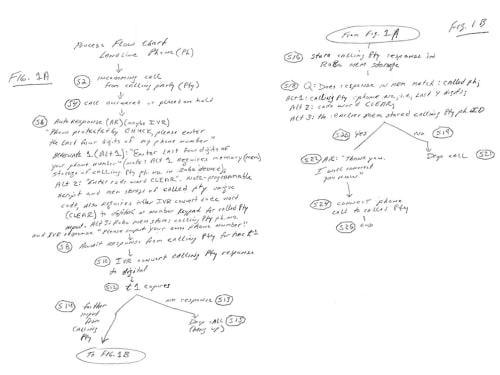 Process Flow Chart
Landline Phone (Ph)
FIG. 1A
S2 incoming call
from calling party (Pty)
S4 call answered & placed on hold
S6 Auto Response (AR) (maybe IVR)
"Phone protected by CHUCK, please enter
the last four digits of my phone number"
Alternate 1 (Alt 1): "Enter last four digits of
your phone number" (note: Alt 1 requires memory (mem)
storage of calling Pty ph. no. in
Alt 2: "Enter code word CLEAR". Note - programmable
script and mem storage of called pty unique
code, also requires either IVR convert code word
(CLEAR) to digital or number keypad for called Pty
input. Alt 3: mem stores calling Pty ph. no.
and IVR response "Please input your own phone number"
S8 Await response from calling Pty for time t1
S10 IVR convert calling Pty response
to digital
S12 t1 expires
S14 further
input
from
calling
Pty
no response S13
Drop call S15
(hang up)
To FIG. 1B
From Fig. 1A
FIG. 1B
S16 store calling Pty response in
mem storage
S18 Q: Does response in mem match: called ph;
Alt 1: calling Pty phone no., i.e., last 4 digits;
Alt 2: code word CLEAR;
Alt 3: the earlier mem stored calling Pty ph. ID
S20 Yes
no S19
S22 AR: "Thank you.
I will connect
you now"
Drop call S21
S24 connect phone
call to called Pty
S26 end